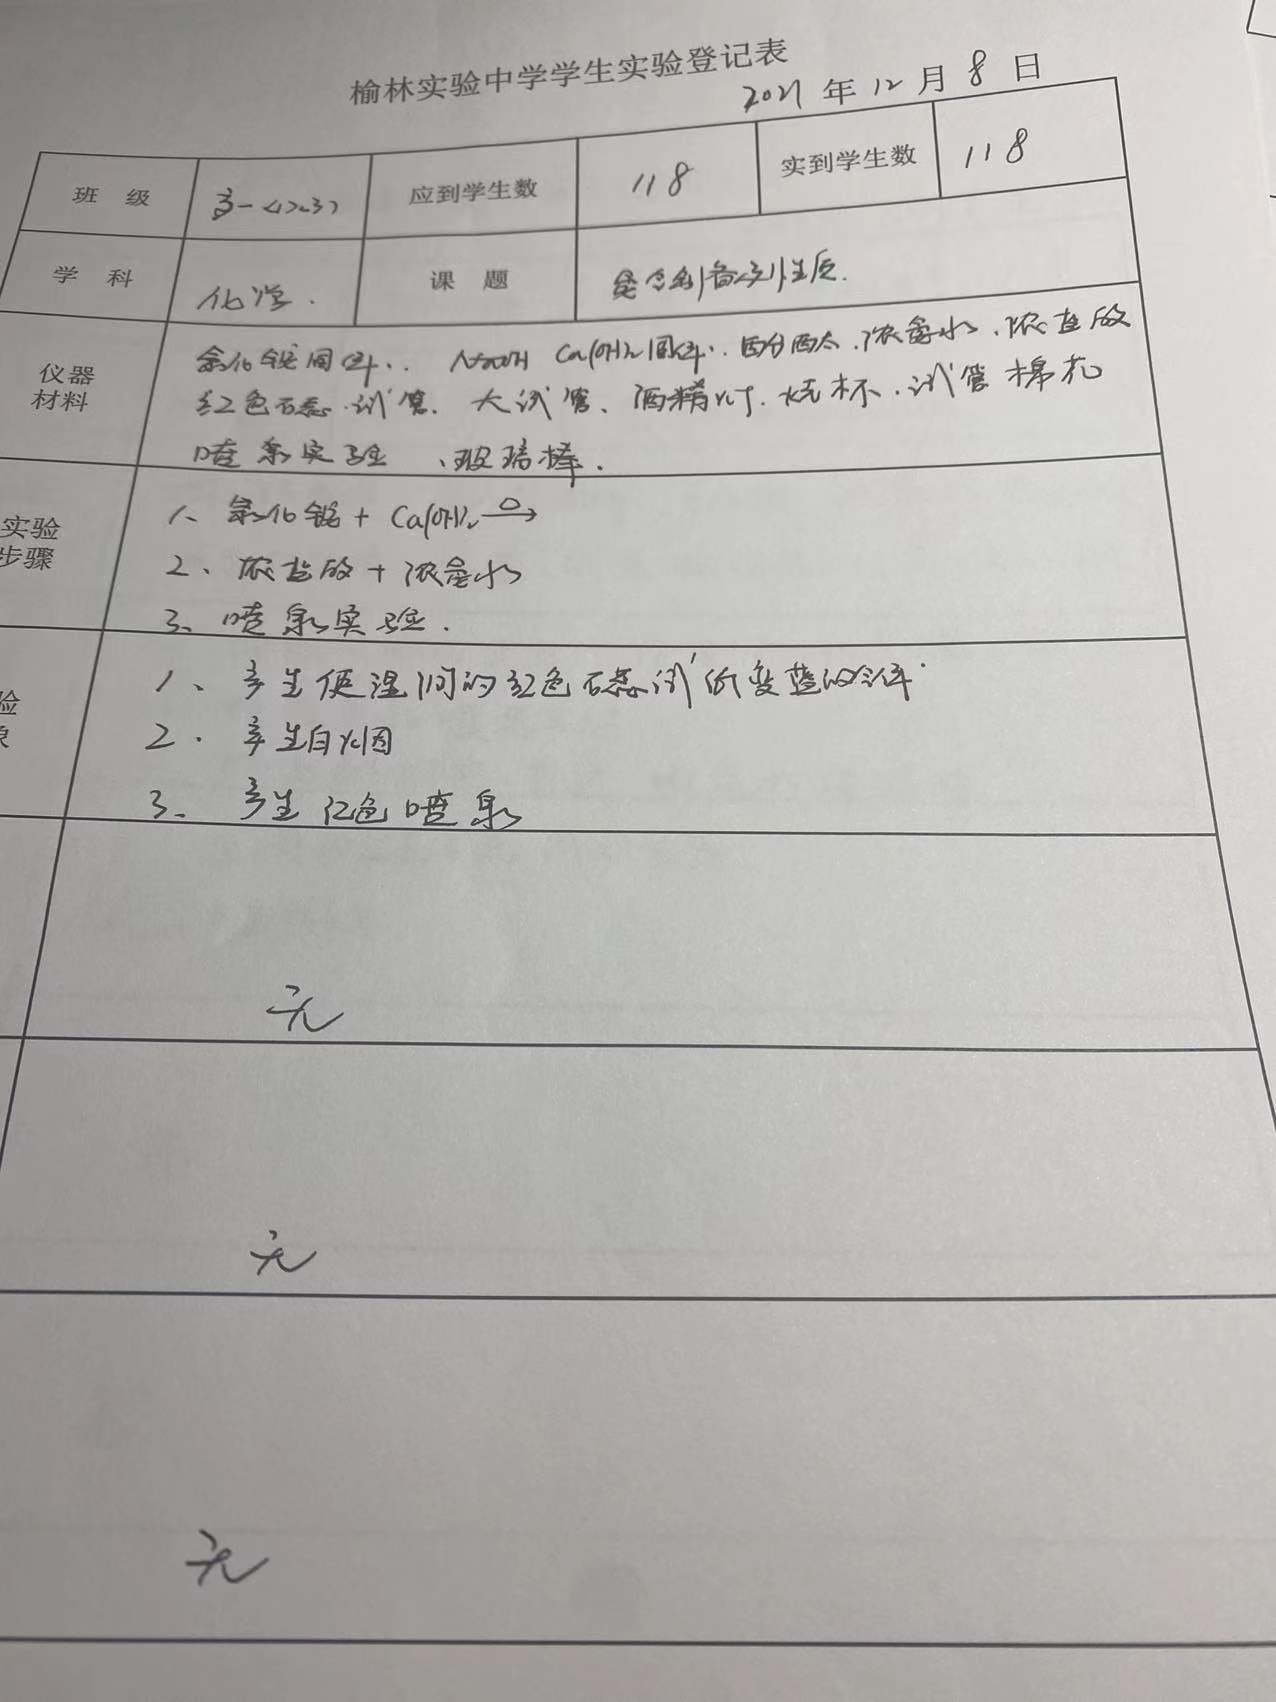 榆林实验中学学生实验登记表
2021 年 12 月 8 日
班 级 高一<1><3> 应到学生数 118 实到学生数 118
学 科 化学. 课 题 氨的制备及性质.
仪器 氯化铵固体. NaOH Ca(OH)₂固体. 酚酞. 浓氨水. 浓盐酸
材料 红色石蕊试 大试管、酒精灯. 烧杯. 试管 棉花
喷泉实验 、玻璃棒.
实验 1、氯化铵 + Ca(OH)₂ △→
步骤 2、浓盐酸 + 浓氨水
3、喷泉实验.
验 1、产生使湿润的红色石蕊试纸变蓝的气体.
2. 产生白烟
3、产生红色喷泉
无
无
无